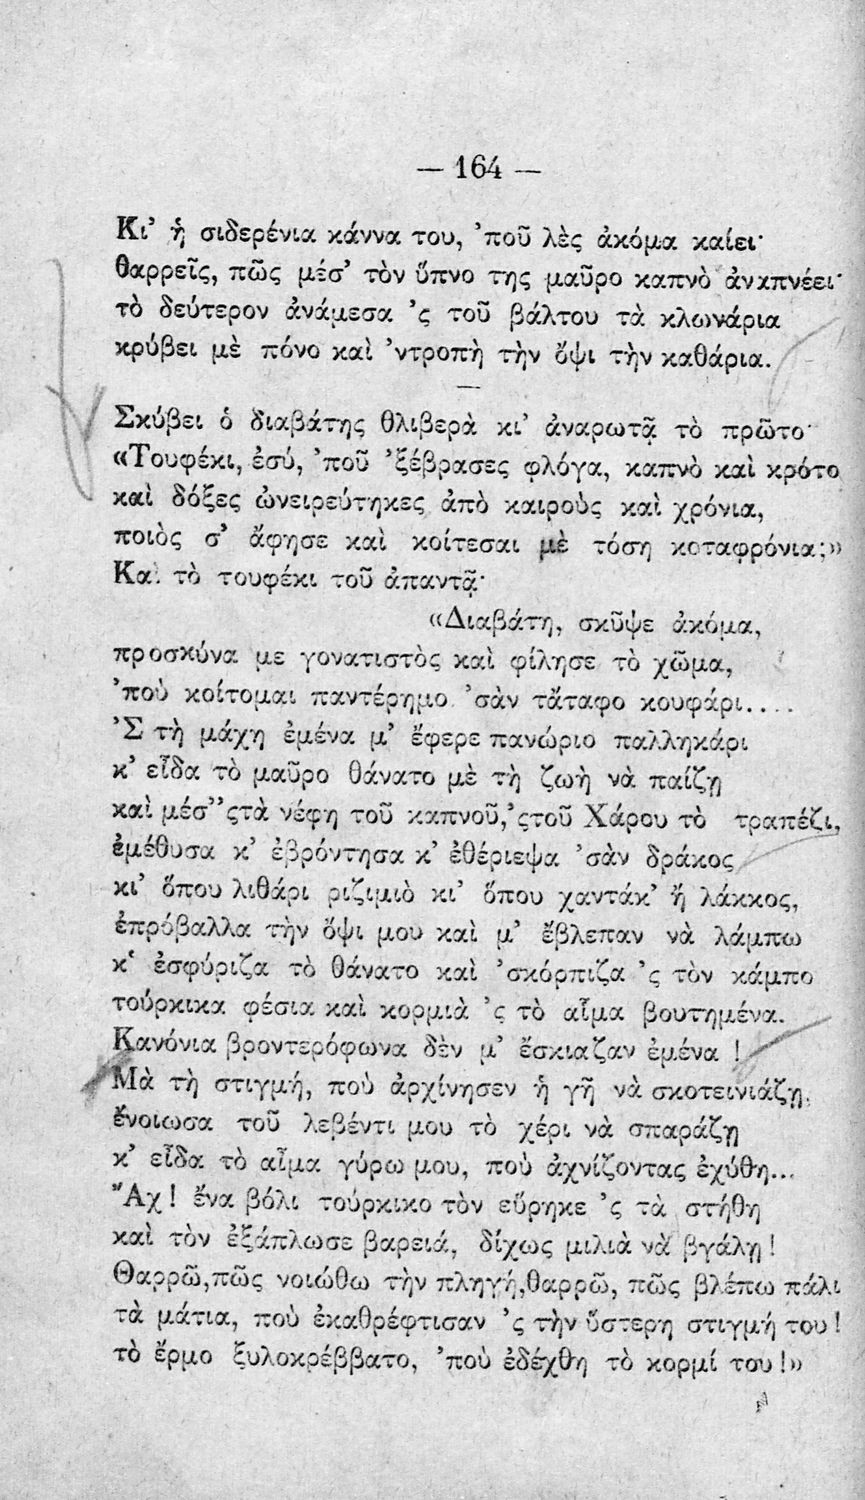 — 164 —
Κι' ἡ σιδερένια κάννα του, 'ποῦ λὲς ἀκόμα καίει·
θαρρεῖς, πῶς μέσ' τὸν ὕπνο της μαῦρο καπνὸ ἀναπνέει·
τὸ δεύτερον ἀνάμεσα 'ς τοῦ βάλτου τὰ κλωνάρια
κρύβει μὲ πόνο καὶ 'ντροπὴ τὴν ὄψι τὴν καθάρια.
—
Σκύβει ὁ διαβάτης θλιβερὰ κι' ἀναρωτᾷ τὸ πρῶτο·
«Τουφέκι, ἐσύ, 'ποῦ 'ξέβρασες φλόγα, καπνὸ καὶ κρότο
καὶ δόξες ὠνειρεύτηκες ἀπὸ καιροὺς καὶ χρόνια,
ποιὸς σ' ἄφησε καὶ κοίτεσαι μὲ τόση κοταφρόνια;»
Καὶ τὸ τουφέκι τοῦ ἀπαντᾷ·
«Διαβάτη, σκῦψε ἀκόμα,
προσκύνα με γονατιστὸς καὶ φίλησε τὸ χῶμα,
'ποὺ κοίτομαι παντέρημο 'σὰν τἄταφο κουφάρι....
'Σ τὴ μάχη ἐμένα μ' ἔφερε πανώριο παλληκάρι
κ' εἶδα τὸ μαῦρο θάνατο μὲ τὴ ζωὴ νὰ παίζῃ
καὶ μέσ' 'ςτὰ νέφη τοῦ καπνοῦ,'ςτοῦ Χάρου τὸ τραπέζι,
ἐμέθυσα κ' ἐβρόντησα κ' ἐθέριεψα 'σὰν δράκος
κι' ὅπου λιθάρι ριζιμιὸ κι' ὅπου χαντάκ' ἢ λάκκος,
ἐπρόβαλλα τὴν ὄψι μου καὶ μ' ἔβλεπαν νὰ λάμπω
κ' ἐσφύριζα τὸ θάνατο καὶ 'σκόρπιζα 'ς τὸν κάμπο
τούρκικα φέσια καὶ κορμιὰ 'ς τὸ αἷμα βουτημένα.
Κανόνια βροντερόφωνα δὲν μ' ἔσκιαζαν ἐμένα !
Μὰ τὴ στιγμή, ποὺ ἀρχίνησεν ἡ γῆ νὰ σκοτεινιάζῃ,
ἔνοιωσα τοῦ λεβέντι μου τὸ χέρι νὰ σπαράζῃ
κ' εἶδα τὸ αἷμα γύρω μου, ποὺ ἀχνίζοντας ἐχύθη...
Ἄχ! ἕνα βόλι τούρκικο τὸν εὕρηκε 'ς τὰ στήθη
καὶ τὸν ἐξάπλωσε βαρειά, δίχως μιλιὰ νὰ βγάλῃ!
Θαρρῶ,πῶς νοιώθω τὴν πληγή,θαρρῶ, πῶς βλέπω πάλι
τὰ μάτια, ποὺ ἐκαθρέφτισαν 'ς τὴν ὕστερη στιγμή του!
τὸ ἔρμο ξυλοκρέββατο, 'ποὺ ἐδέχθη τὸ κορμί του!»